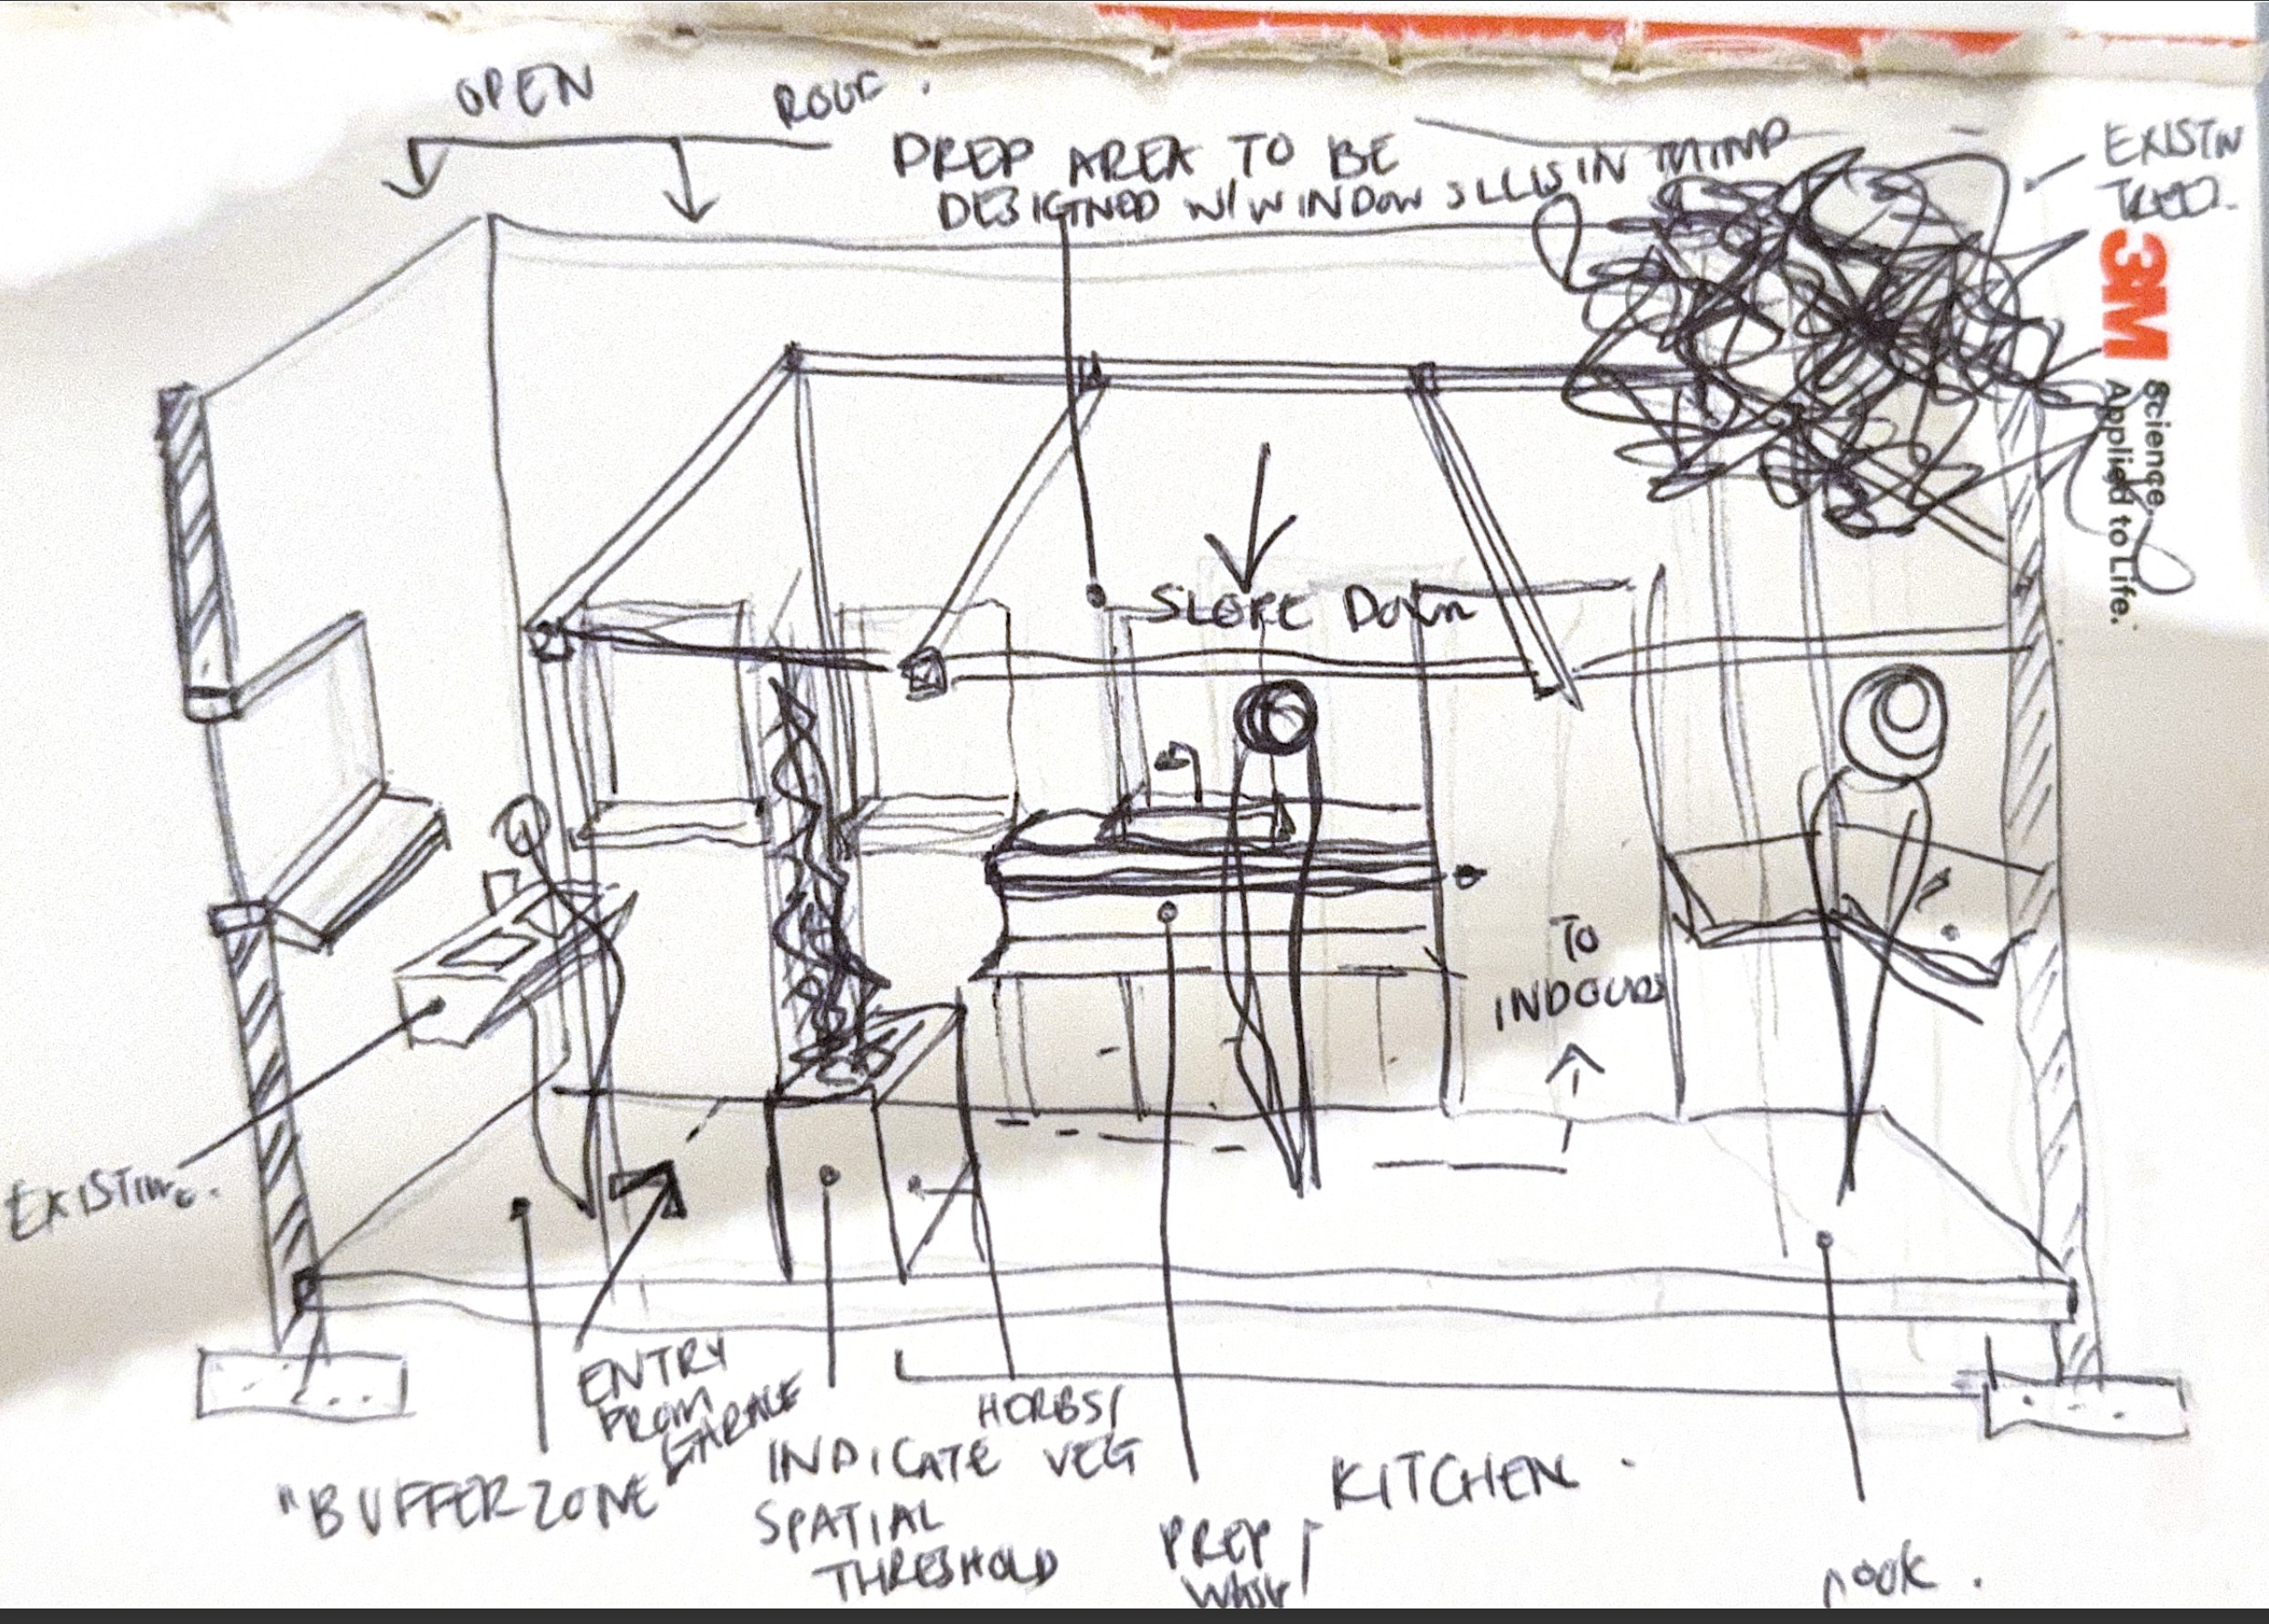 OPEN ROOF.
PREP AREA TO BE
DESIGNED W/ WINDOW SILLS IN MIND
EXISTIN
TREE.
3M
Science.
Applied to Life.
SLOPE DOWN
TO
INDOORS
EXISTING.
"BUFFER ZONE
ENTRY
FROM
GARAGE
HERBS/
VEG
INDICATE
SPATIAL
THRESHOLD
PREP
WASH/
KITCHEN.
NOOK.